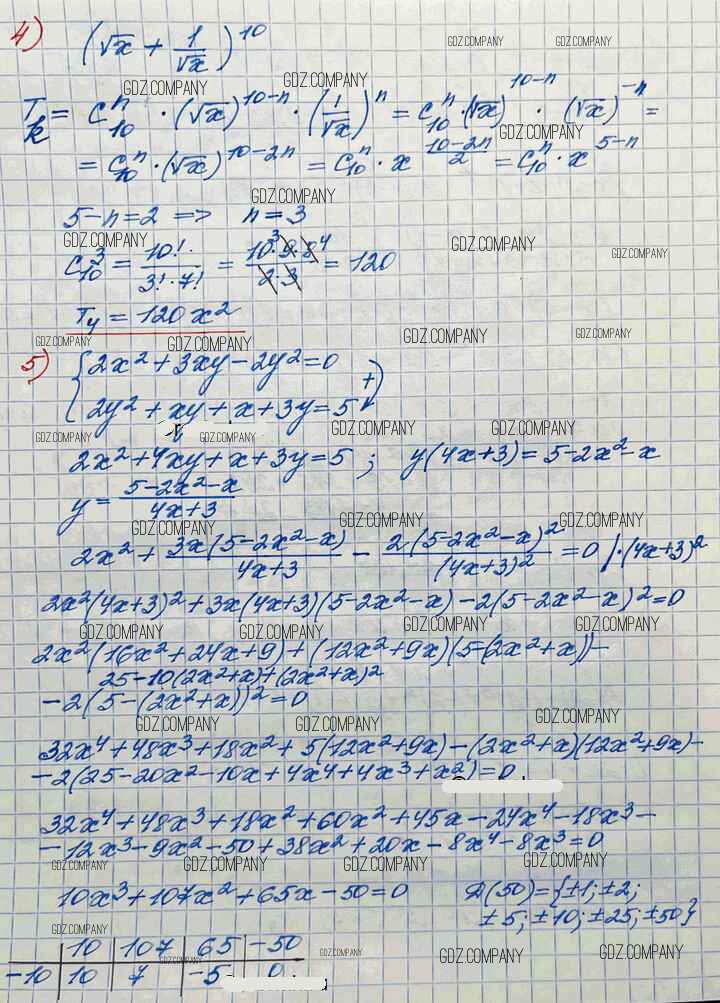 4) (√x + 1/√x)^10
GDZ.COMPANY GDZ.COMPANY
GDZ.COMPANY GDZ.COMPANY
T_k = C_10^n · (√x)^(10-n) · (1/√x)^n = C_10^n · (√x)^(10-n) · (√x)^(-n) =
GDZ.COMPANY
= C_10^n · (√x)^(10-2n) = C_10^n · x^((10-2n)/2) = C_10^n · x^(5-n)
GDZ.COMPANY
5-n=2 => n=3
GDZ.COMPANY GDZ.COMPANY GDZ.COMPANY
C_10^3 = 10!/(3!·7!) = (10·9·8)/(2·3) = 120
T_4 = 120x²
GDZ.COMPANY GDZ.COMPANY GDZ.COMPANY GDZ.COMPANY
5) { 2x² + 3xy - 2y² = 0
2y² + xy + x + 3y = 5 (+)
GDZ.COMPANY GDZ.COMPANY GDZ.COMPANY GDZ.COMPANY
2x² + 4xy + x + 3y = 5 ; y(4x+3) = 5-2x²-x
y = (5-2x²-x)/(4x+3)
GDZ.COMPANY GDZ.COMPANY GDZ.COMPANY
2x² + 3x(5-2x²-x)/(4x+3) - 2(5-2x²-x)²/(4x+3)² = 0 /·(4x+3)²
2x²(4x+3)² + 3x(4x+3)(5-2x²-x) - 2(5-2x²-x)² = 0
GDZ.COMPANY GDZ.COMPANY GDZ.COMPANY GDZ.COMPANY
2x²(16x²+24x+9) + (12x²+9x)(5-(2x²+x)) -
25-10(2x²+x)+(2x²+x)²
-2(5-(2x²+x))² = 0
GDZ.COMPANY GDZ.COMPANY GDZ.COMPANY
32x⁴ + 48x³ + 18x² + 5(12x²+9x) - (2x²+x)(12x²+9x) -
-2(25-20x²-10x+4x⁴+4x³+x²) = 0
32x⁴ + 48x³ + 18x² + 60x² + 45x - 24x⁴ - 18x³ -
-12x³ - 9x² - 50 + 38x² + 20x - 8x⁴ - 8x³ = 0
GDZ.COMPANY GDZ.COMPANY GDZ.COMPANY GDZ.COMPANY
10x³ + 107x² + 65x - 50 = 0 Д(50) = {±1; ±2;
±5; ±10; ±25; ±50}
GDZ.COMPANY
10 107 65 -50
GDZ.COMPANY GDZ.COMPANY GDZ.COMPANY GDZ.COMPANY
-10 10 7 -5 0